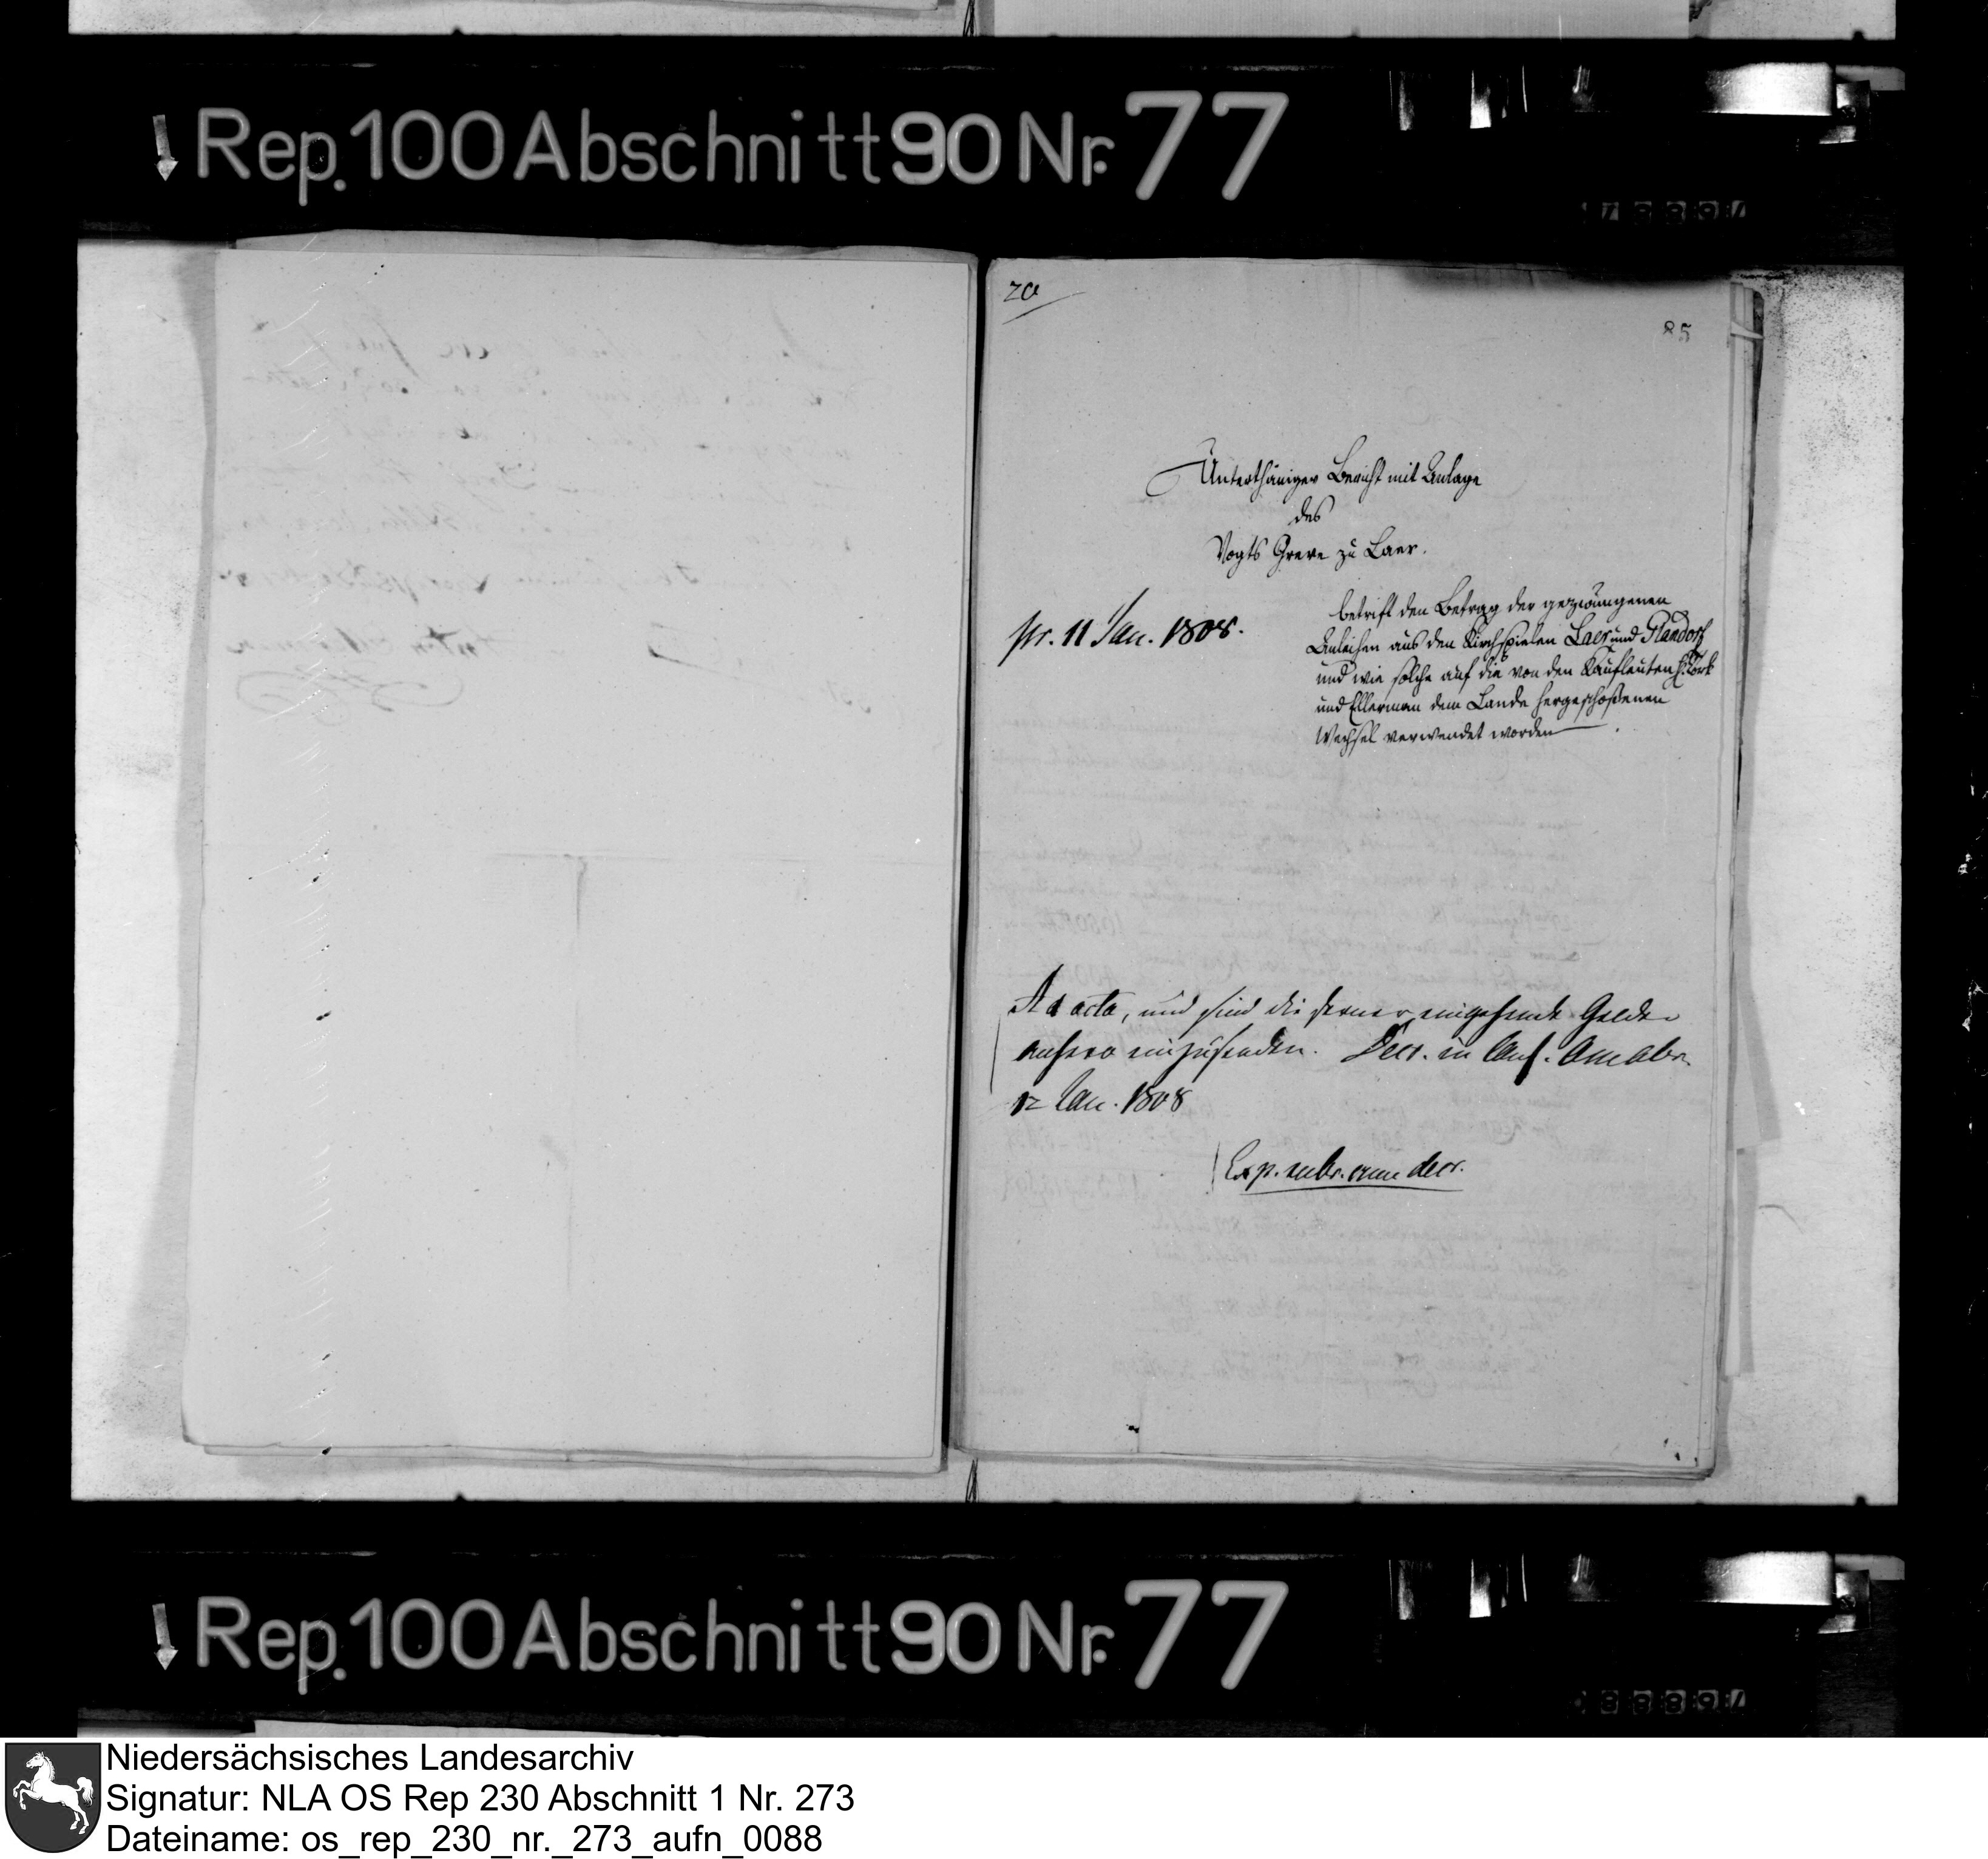 Rep. 100 Abschnitt 90 Nr. 77
20
85
Unterthäniger Bericht mit Anlage
des
Vogts Greve zu Laer.
pr. 11 Jan. 1808.
betrift den Betrag der gezwungenen
Anleihen aus den Kirchspielen Laer und Glandorf
und wie solche auf die von den Kaufleuten
und Ellerman dem Lande hergeschoßenen
Wechsel verwendet worden.
Ad acta, und sind die ferner eingehende Gelder
anhero einzusenden. Decr. in Conf. Cam
12 Jan. 1808
Exp. cum decr.
Rep. 100 Abschnitt 90 Nr. 77
Niedersächsisches Landesarchiv
Signatur: NLA OS Rep 230 Abschnitt 1 Nr. 273
Dateiname: os_rep_230_nr._273_aufn_0088